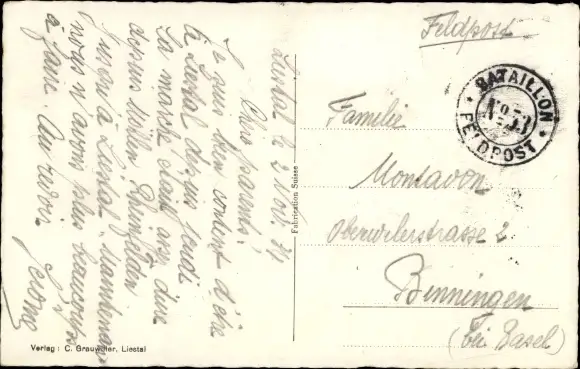 Liestal le 2 Nov. 39
Chers parents!
Je suis bien content d'être
à Liestal depuis jeudi
La marche était assez dure
depuis Möhlin Rheinfelden
jusqu'à Liestal. Maintenant
nous n'avons plus beaucoup
à faire. Au revoir
Jerome
Fabrication Suisse
Feldpost
BATAILLON
No 53
FELDPOST
Familie
Montavon
Oberwilerstrasse 2
Binningen
(bei Basel)
Verlag: C. Grauwiler, Liestal